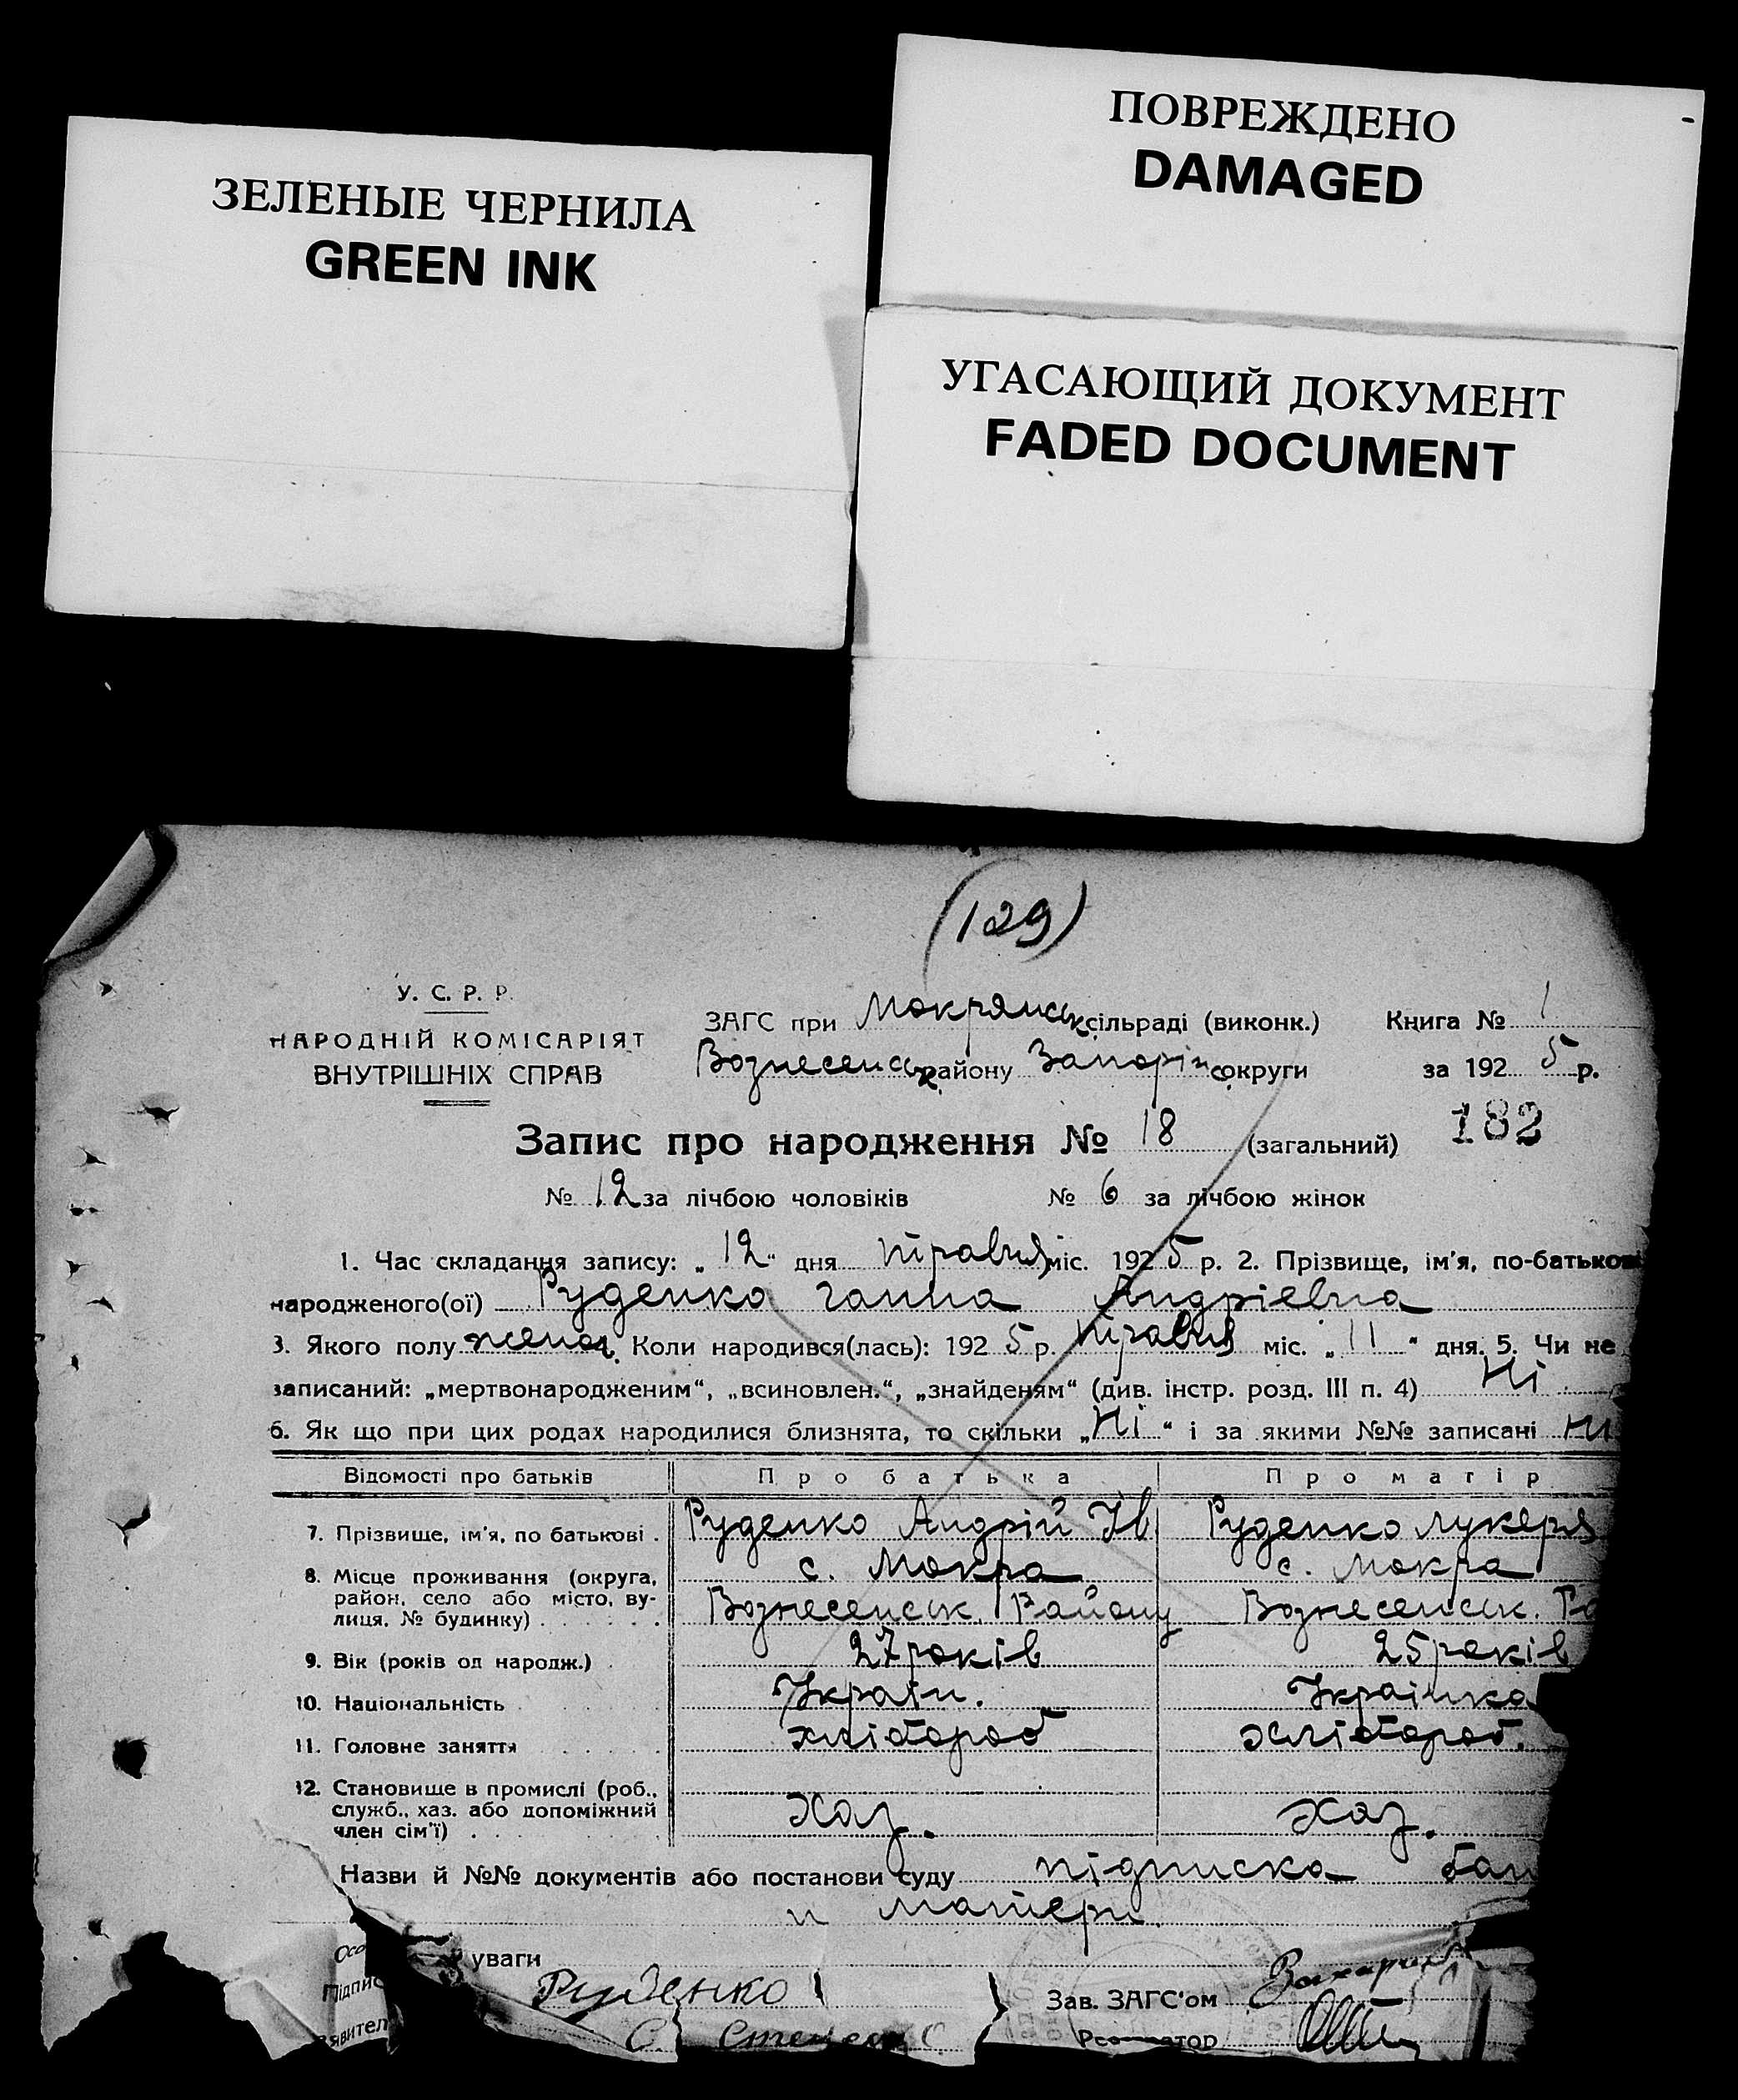 ЗЕЛЕНЫЕ ЧЕРНИЛА
GREEN INK
ПОВРЕЖДЕНО
DAMAGED
УГАСАЮЩИЙ ДОКУМЕНТ
FADED DOCUMENT
(129)
У. С. Р. Р.
НАРОДНІЙ КОМІСАРІЯТ
ВНУТРІШНІХ СПРАВ
ЗАГС при Мокрянськ сільраді (виконк.) Книга № 1
Вознесенськ району Запоріж округи за 1925 р.
Запис про народження № 18 (загальний) 182
№ 12 за лічбою чоловіків № 6 за лічбою жінок
1. Час складання запису: „12“ дня травня міс. 1925 р. 2. Прізвище, ім'я, по-батькові
народженого(ої) Руденко Ганна Андріевна
3. Якого полу женоч. Коли народився(лась): 1925 р. травня міс. „11“ дня. 5. Чи не
записаний: „мертвонародженим“, „всиновлен.“, „знайденям“ (див. інстр. розд. III п. 4) Ні
6. Як що при цих родах народилися близнята, то скільки „Ні“ і за якими №№ записані ні
Відомості про батьків Про батька Про матір
7. Прізвище, ім'я, по батькові . Руденко Андрій Ів Руденко Лукеря
8. Місце проживання (округа, с. Мокра с. Мокра
район, село або місто, ву-
лиця, № будинку) . . . . . . Вознесенськ. Району Вознесенськ. Ра
9. Вік (років од народж.) . 27 років 25 років
10. Національність Україн. Українка
11. Головне заняття . . . . . хлібороб хлібороб.
12. Становище в промислі (роб.,
служб., хаз. або допоміжний Хаз. Хаз.
член сім'ї) . .
Назви й №№ документів або постанови суду підписка бат
и матери
Осо уваги
Підпис Руденко
явител
Зав. ЗАГС'ом